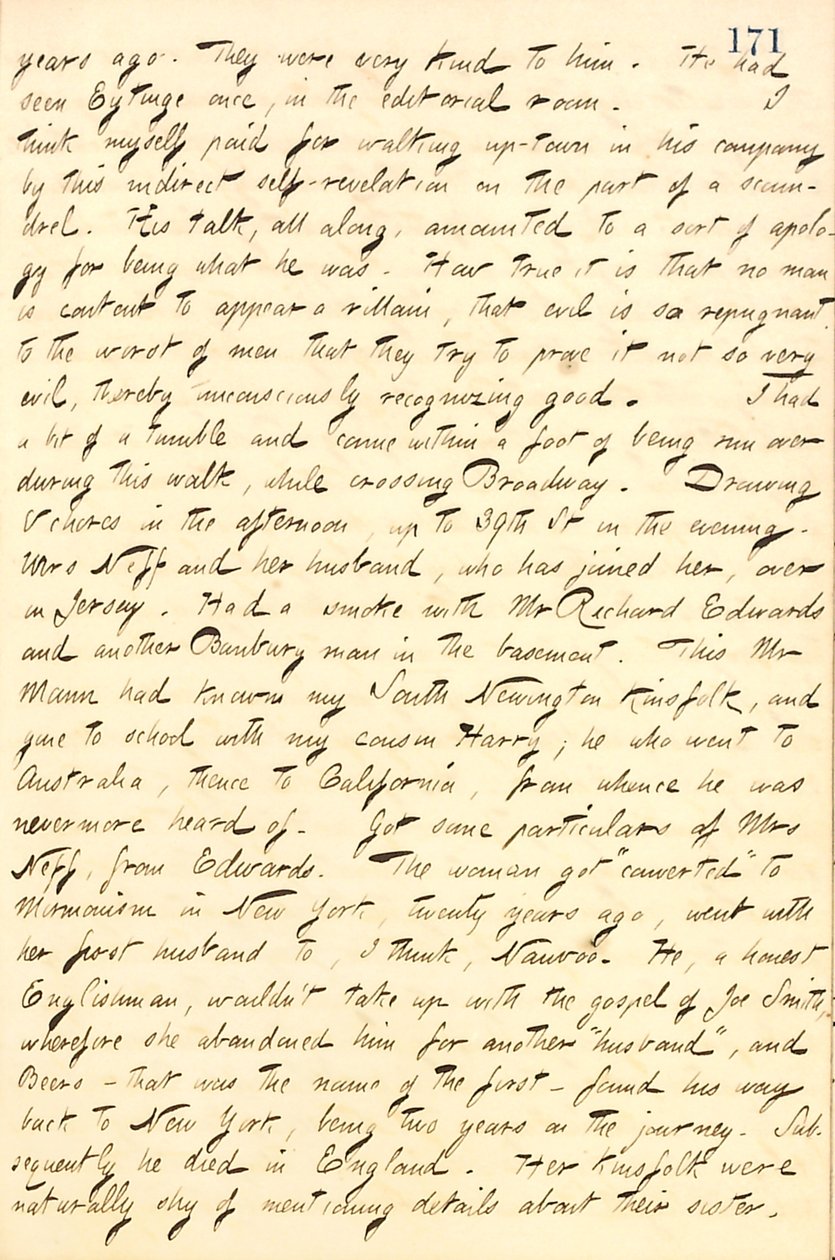 171
years ago. They were very kind to him. He had
seen Eytinge once, in the editorial room. I
think myself paid for walking up-town in his company
by this indirect self-revelation on the part of a scoun-
drel. His talk, all along, amounted to a sort of apolo-
gy for being what he was. How true it is that no man
is content to appear a villain, that evil is so repugnant
to the worst of men that they try to prove it not so very
evil, thereby unconsciously recognizing good. I had
a bit of a tumble and came within a foot of being run over
during this walk, while crossing Broadway. Drawing
& chores in the afternoon, up to 39th St in the evening.
Mrs Neff and her husband, who has joined her, over
in Jersey. Had a smoke with Mr Richard Edwards
and another Banbury man in the basement. This Mr
Mann had known my South Newington kinsfolk, and
gone to school with my cousin Harry; he who went to
Australia, thence to California, from whence he was
nevermore heard of. Got some particulars of Mrs
Neff, from Edwards. The woman got "converted" to
Mormonism in New York, twenty years ago, went with
her first husband to, I think, Nauvoo. He, a honest
Englishman, wouldn't take up with the gospel of Joe Smith,
wherefore she abandoned him for another "husband", and
Beers - that was the name of the first - found his way
back to New York, being two years on the journey. Sub-
sequently he died in England. Her kinsfolk were
naturally shy of mentioning details about their sister.